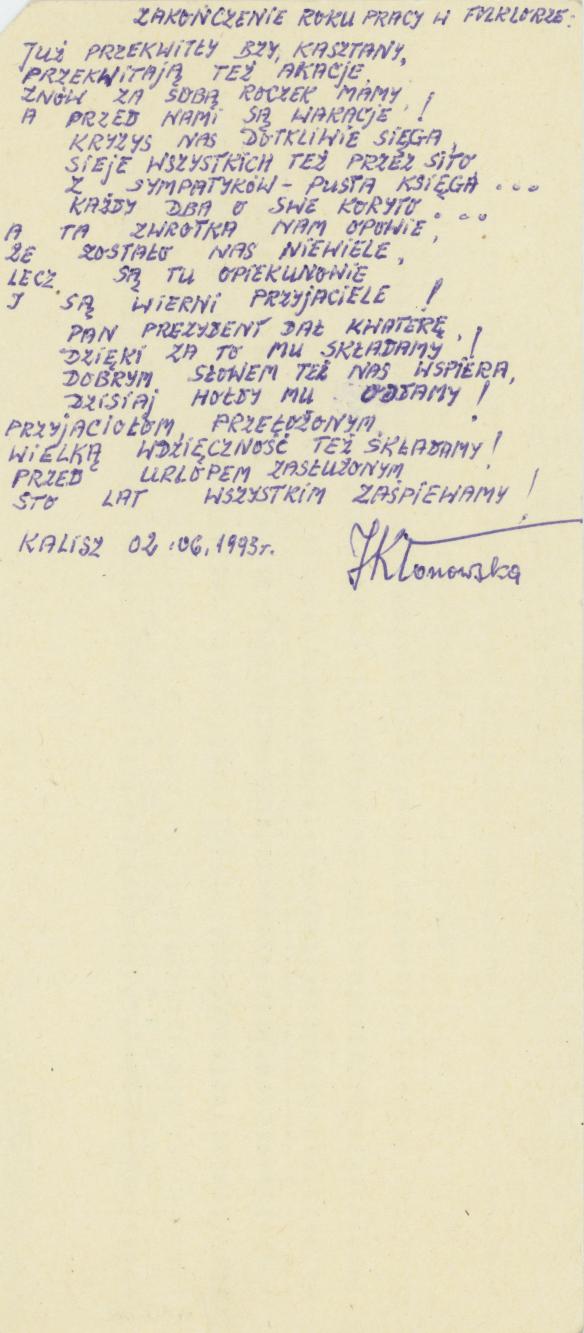 ZAKOŃCZENIE ROKU PRACY W FOLKLORZE:
JUŻ PRZEKWITŁY BZY, KASZTANY,
PRZEKWITAJĄ TEŻ AKACJE,
ZNÓW ZA SOBĄ ROCZEK MAMY,
A PRZED NAMI SĄ WAKACJE!
KRYZYS NAS DOTKLIWIE SIĘGA,
SIEJE WSZYSTKICH TEŻ PRZEZ SITO
Z SYMPATYKÓW - PUSTA KSIĘGA ...
KAŻDY DBA O SWE KORYTO...
A TA ZWROTKA NAM OPOWIE,
ŻE ZOSTAŁO NAS NIEWIELE,
LECZ SĄ TU OPIEKUNOWIE
I SĄ WIERNI PRZYJACIELE!
PAN PREZYDENT DAŁ KWATERĘ,
DZIĘKI ZA TO MU SKŁADAMY!
DOBRYM SŁOWEM TEŻ NAS WSPIERA,
DZISIAJ HOŁDY MU ODDAMY!
PRZYJACIOŁOM, PRZEŁOŻONYM
WIELKĄ WDZIĘCZNOŚĆ TEŻ SKŁADAMY!
PRZED URLOPEM ZASŁUŻONYM
STO LAT WSZYSTKIM ZAŚPIEWAMY!
KALISZ 02.06.1993r.
JKłonowska